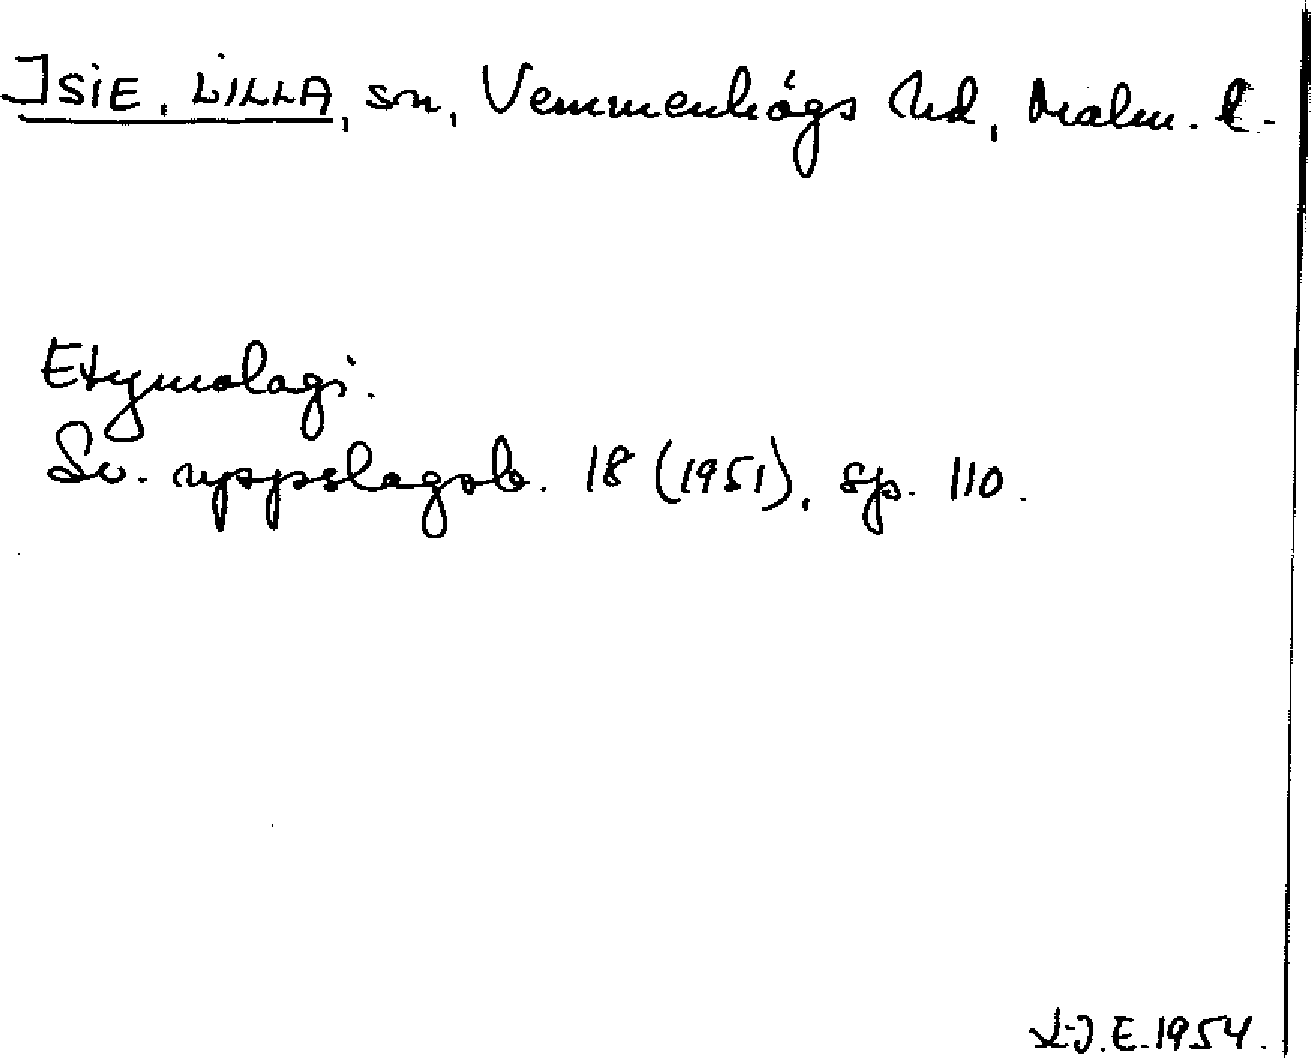 ISIE, LILLA, sn, Vemmenhögs hd, Malm. l.
Etymologi.
Sv. uppslagsb. 18 (1951), sp. 110.
K-J.E. 1954.